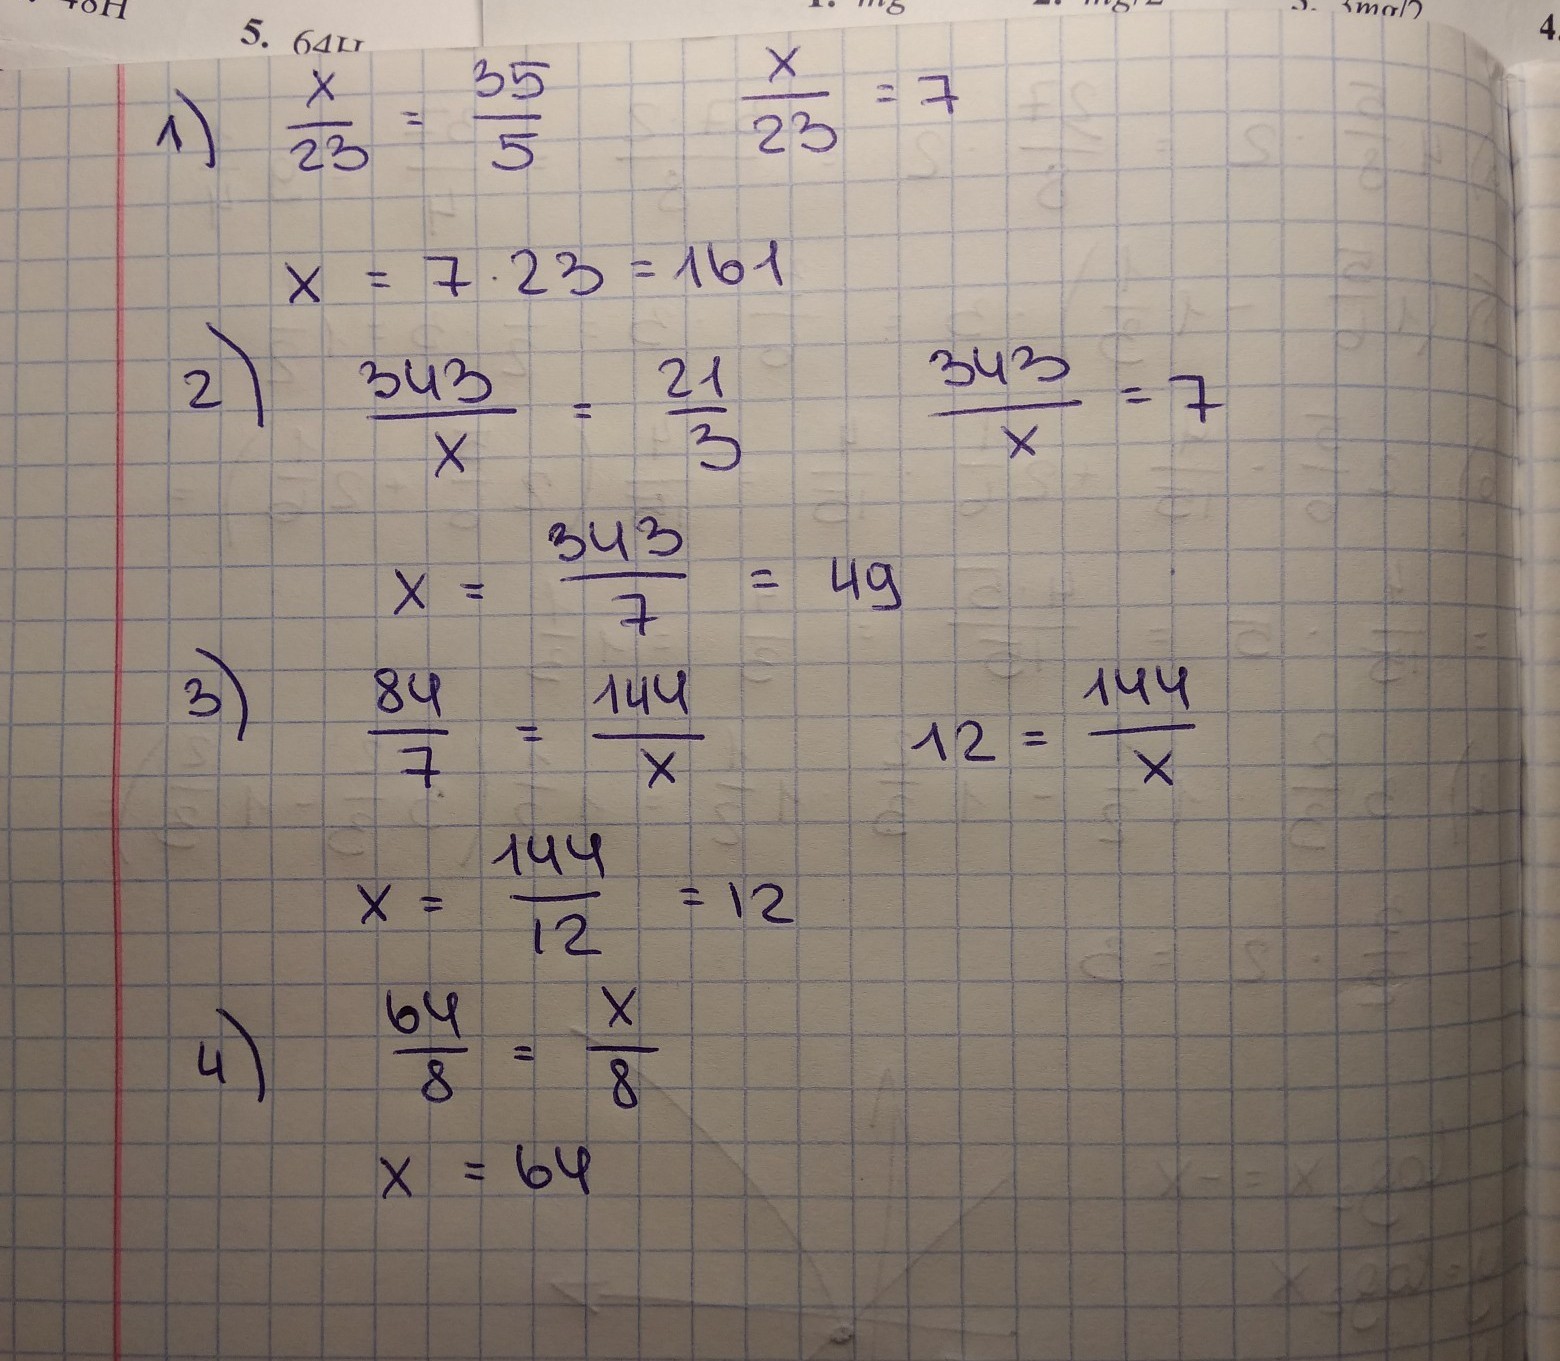 5. 64H
1) x/23 = 35/5 x/23 = 7
x = 7 · 23 = 161
2) 343/x = 21/3 343/x = 7
x = 343/7 = 49
3) 84/7 = 144/x 12 = 144/x
x = 144/12 = 12
4) 64/8 = x/8
x = 64